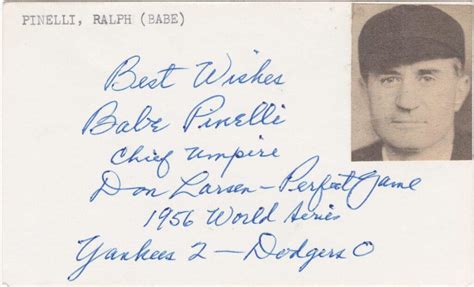 PINELLI, RALPH (BABE)
Best Wishes
Babe Pinelli
Chief Umpire
Don Larsen - Perfect Game
1956 World Series
Yankees 2 - Dodgers 0